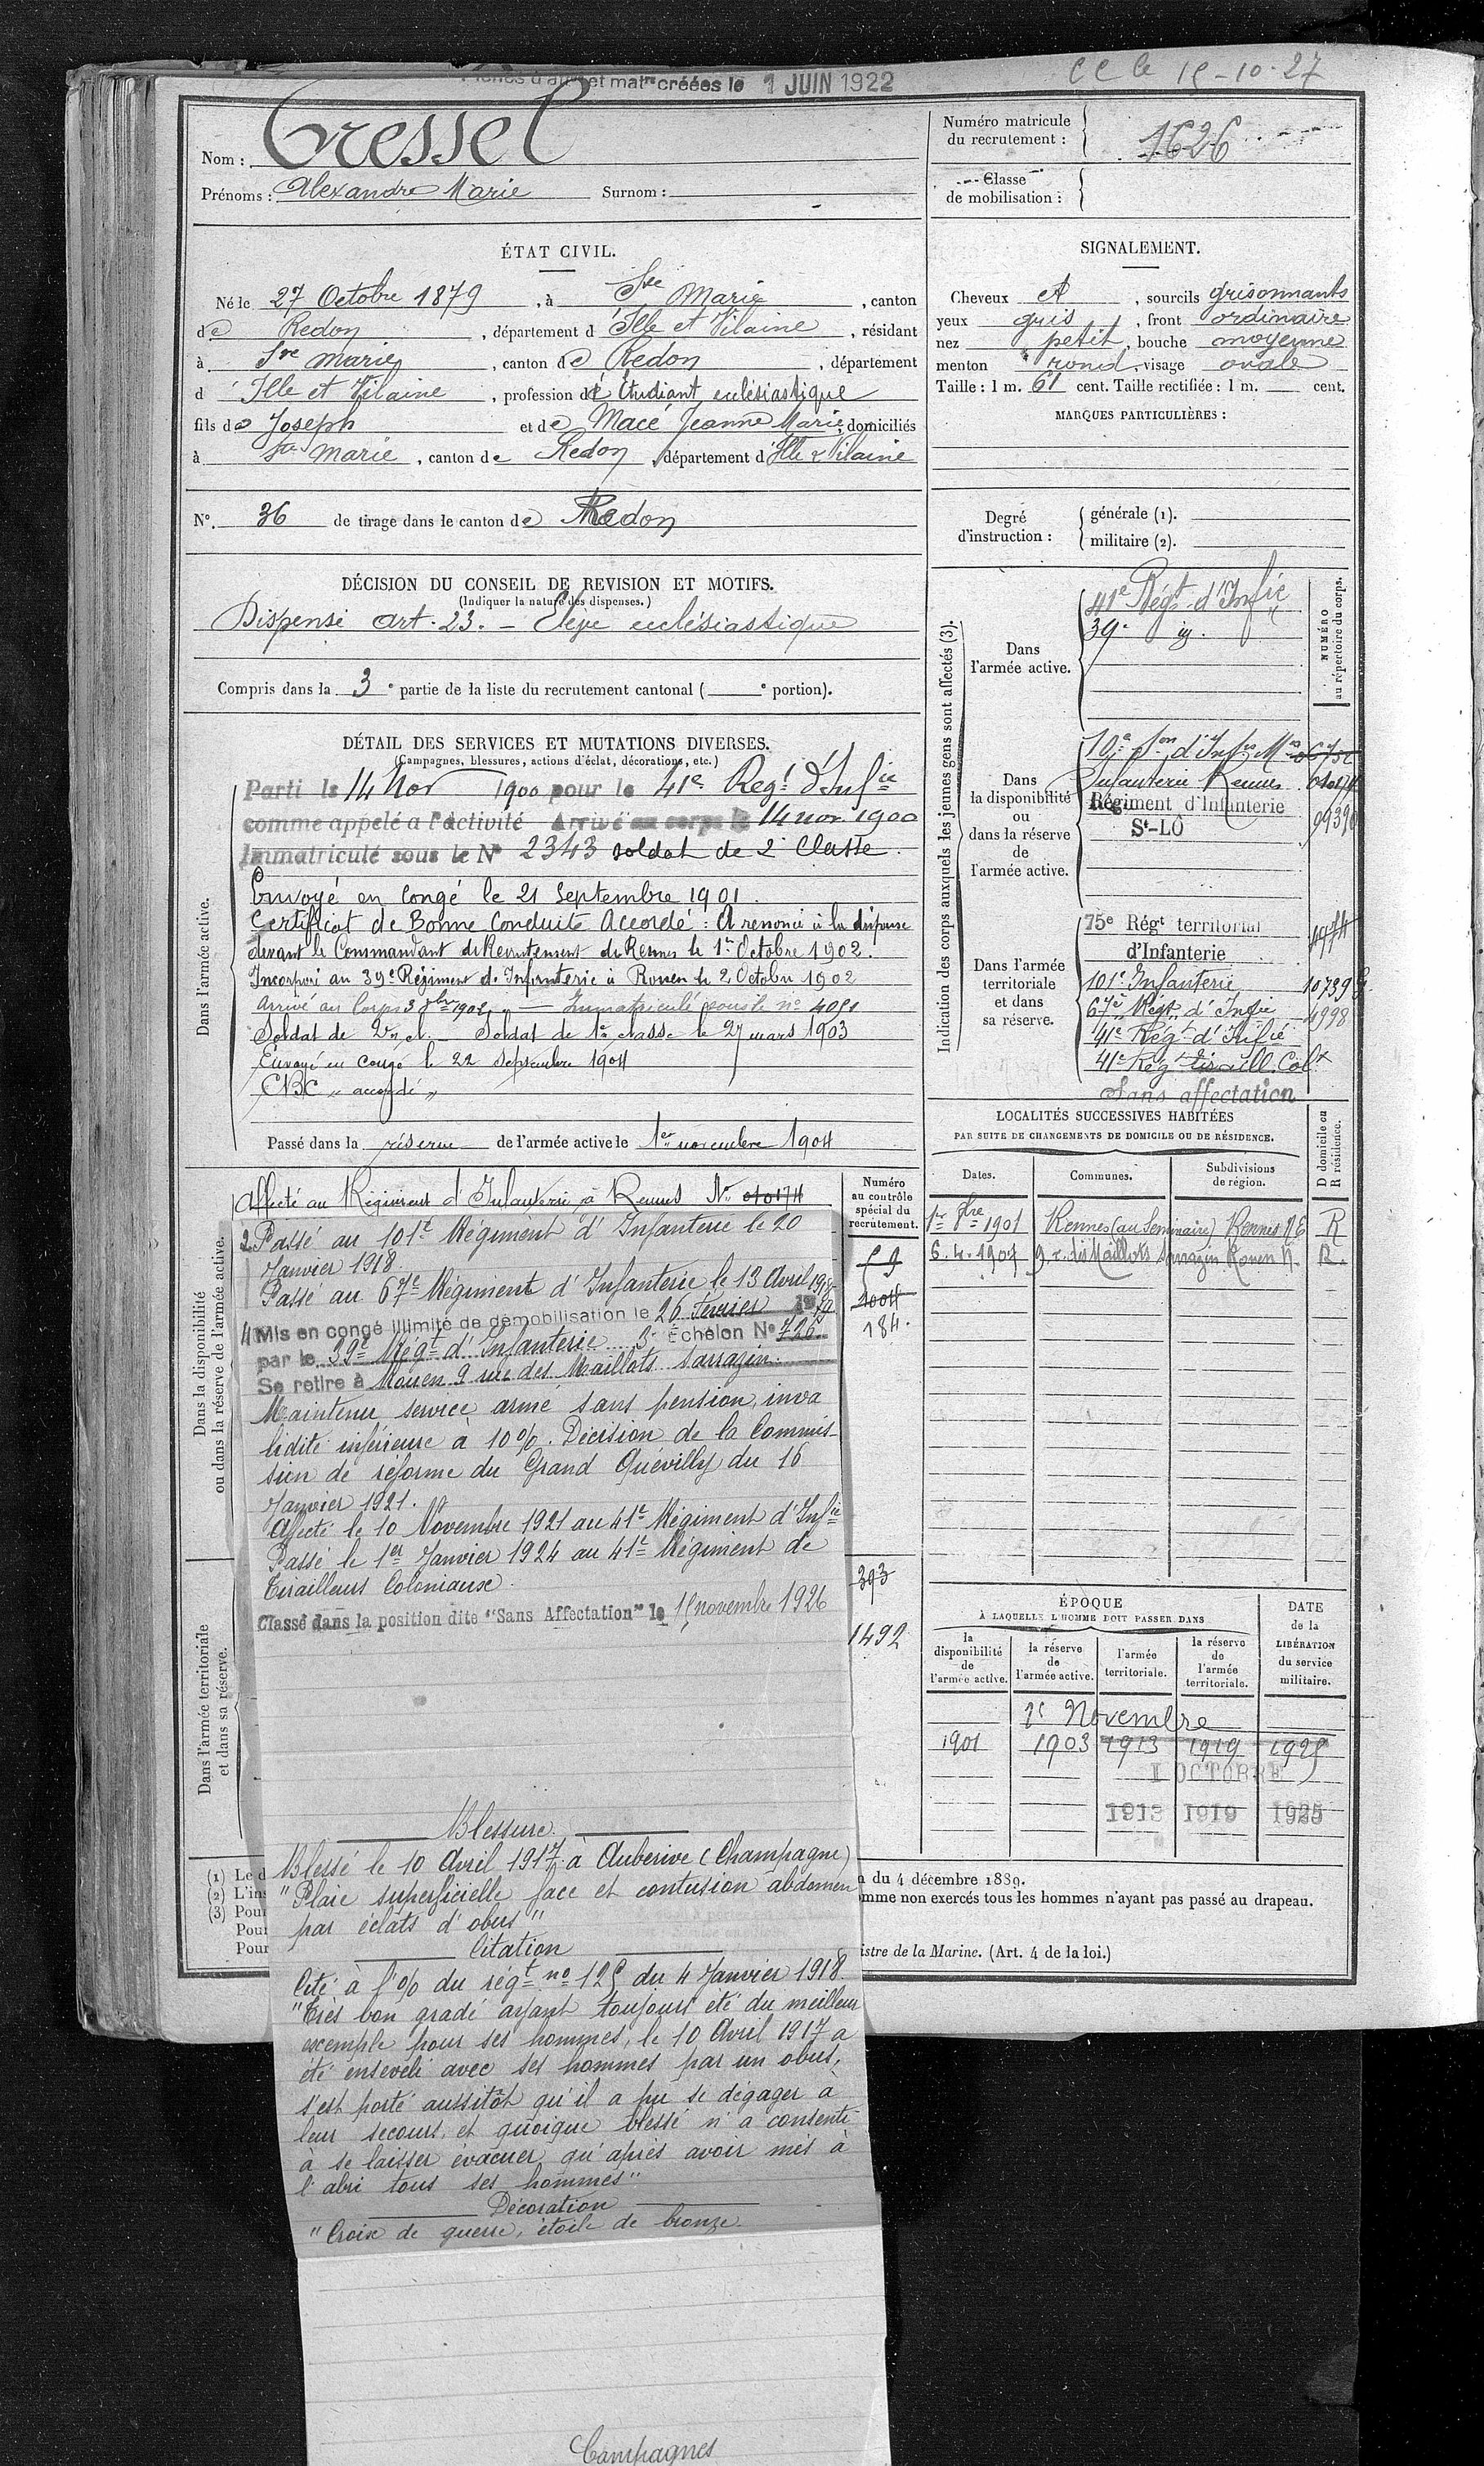 Fiches d'aff et matre créées le 1 JUIN 1922
CC le 15-10-27
Nom : Tressel
Prénoms : Alexandre Marie Surnom :
Numéro matricule du recrutement : 1626
Classe de mobilisation :
ÉTAT CIVIL.
Né le 27 Octobre 1879, à Ste Marie, canton
de Redon, département d'Ille et Vilaine, résidant
à Ste Marie, canton de Redon, département
d'Ille et Vilaine, profession d'Étudiant ecclésiastique
fils de Joseph et de Macé Jeanne Marie, domiciliés
à Ste Marie, canton de Redon, département d'Ille & Vilaine
N°. 36 de tirage dans le canton de Redon
SIGNALEMENT.
Cheveux et, sourcils grisonnants
yeux gris, front ordinaire
nez petit, bouche moyenne
menton rond, visage ovale
Taille : 1 m. 61 cent. Taille rectifiée : 1 m. cent.
MARQUES PARTICULIÈRES :
Degré d'instruction :
générale (1).
militaire (2).
DÉCISION DU CONSEIL DE REVISION ET MOTIFS.
(Indiquer la nature des dispenses.)
Dispensé art. 23. - Élève ecclésiastique
Compris dans la 3e partie de la liste du recrutement cantonal ( e portion).
DÉTAIL DES SERVICES ET MUTATIONS DIVERSES.
(Campagnes, blessures, actions d'éclat, décorations, etc.)
Dans l'armée active.
Parti le 14 Nov 1900 pour le 41e Regt d'Infie
comme appelé a l'activité Arrivé au corps le 14 nov. 1900
Immatriculé sous le N° 2343 soldat de 2e Classe.
Envoyé en Congé le 21 Septembre 1901.
Certificat de Bonne Conduite Accordé : A renoncé à la dispense
devant le Commandant de Recrutement de Rennes le 1er Octobre 1902.
Incorporé au 39e Régiment d'Infanterie à Rouen le 2 Octobre 1902
Arrivé au Corps 3 8bre 1902 - Immatriculé sous le n° 4051
Soldat de 2e cl. Soldat de 1e classe le 27 mars 1903
Envoyé en congé le 22 Septembre 1904
CBC "accordé"
Passé dans la réserve de l'armée active le 1er novembre 1904
Dans la disponibilité ou dans la réserve de l'armée active.
Affecté au Régiment d'Infanterie à Rennes No 010174
2 Passé au 101e Régiment d'Infanterie le 20
Janvier 1918.
Passé au 67e Régiment d'Infanterie le 13 Avril 1918
4 Mis en congé illimité de démobilisation le 26 Février 1919
par le 39e Régt d'Infanterie 3e Échelon N° 726
Se retire à Rouen 9 rue des Maillots Sarrazin.
Maintenu service armé sans pension, inva
lidité inférieure à 10%. Décision de la Commis-
sion de réforme du Grand Quévilly du 16
Janvier 1921.
Affecté le 10 Novembre 1921 au 41e Régiment d'Infie
Passé le 1er Janvier 1924 au 41e Régiment de
Tirailleurs Coloniaux.
Classé dans la position dite "Sans Affectation" le 15 novembre 1926
Dans l'armée territoriale et dans sa réserve.
Blessure
Blessé le 10 Avril 1917 à Auberive (Champagne)
"Plaie superficielle face et contusion abdomen
par éclats d'obus"
Citation
Cité à l'o/o du régt no 125 du 4 Janvier 1918
"Très bon gradé ayant toujours été du meilleur
exemple pour ses hommes, le 10 Avril 1917 a
été enseveli avec ses hommes par un obus,
s'est porté aussitôt qu'il a pu se dégager à
leur secours, et quoique blessé n'a consenti
à se laisser évacuer qu'après avoir mis à
l'abri tous ses hommes"
Décoration
"Croix de guerre, étoile de bronze
Campagnes
Numéro au contrôle spécial du recrutement.
59
1004
184.
393
1492
Indication des corps auxquels les jeunes gens sont affectés (3).
NUMÉRO au répertoire du corps.
Dans l'armée active.
41e Régt d'Infie
39e
Dans la disponibilité ou dans la réserve de l'armée active.
Infanterie Rennes 010174
Régiment d'Infanterie
St-LÔ
Dans l'armée territoriale et dans sa réserve.
75e Régt territorial
d'Infanterie
101e Infanterie 10739
67e Régt d'Infie 4998
41e Régt d'Infie
41e Régt tiraill. Colx
Sans affectation
LOCALITÉS SUCCESSIVES HABITÉES
PAR SUITE DE CHANGEMENTS DE DOMICILE OU DE RÉSIDENCE.
Dates. Communes. Subdivisions de région. D domicile ou R résidence.
1er 8bre 1901 Rennes (au Séminaire) Rennes R
6.4.1907 9 r. des Maillots Sarrazin Rouen N. R.
ÉPOQUE
À LAQUELLE L'HOMME DOIT PASSER DANS
DATE de la LIBÉRATION du service militaire.
la disponibilité de l'armée active.
la réserve de l'armée active.
l'armée territoriale.
la réserve de l'armée territoriale.
1er Novembre
1901 1903 1913 1919 1925
1 OCTOBRE
1913 1919 1925
(1) Le d
(2) L'ins
(3) Pour
Pour
Pour
du 4 décembre 1889.
omme non exercés tous les hommes n'ayant pas passé au drapeau.
istre de la Marine. (Art. 4 de la loi.)